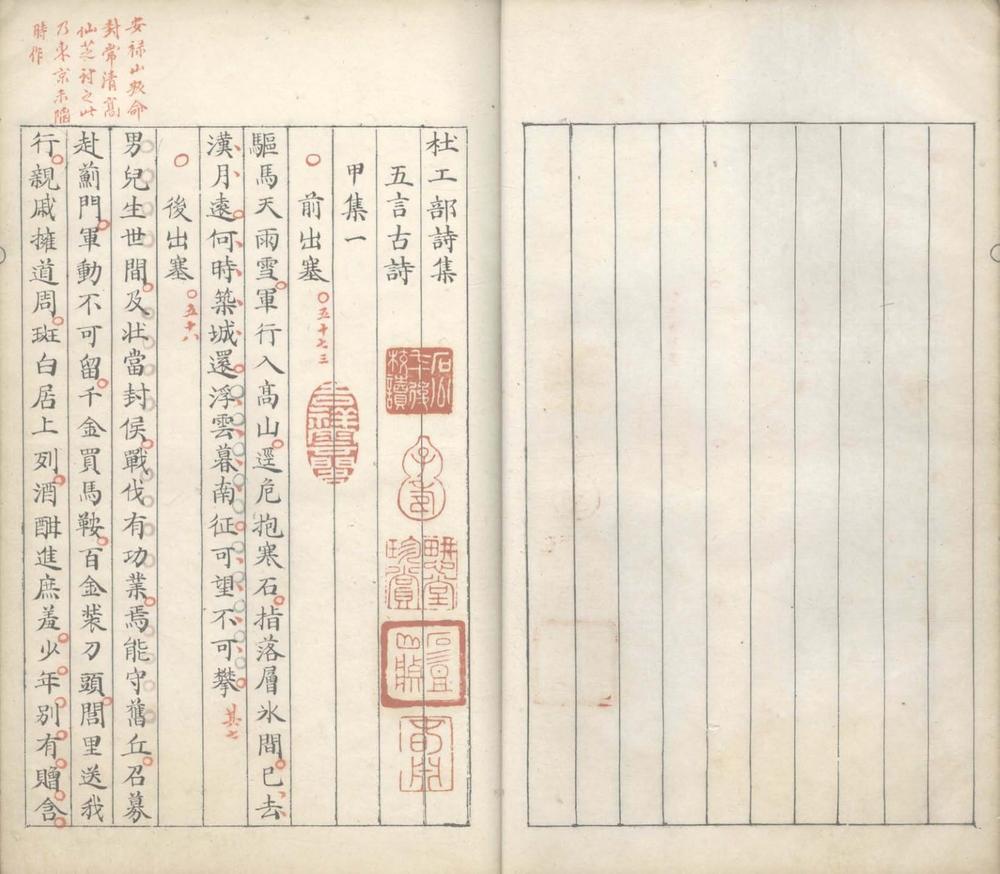 杜工部詩集
五言古詩
甲集一
前出塞
五十七三
驅馬天雨雪軍行入高山逕危抱寒石指落層氷間已去
漢月遠何時築城還浮雲暮南征可望不可攀
其七
後出塞
五十八
男兒生世間及壯當封侯戰伐有功業焉能守舊丘召募
赴薊門軍動不可留千金買馬鞍百金裝刀頭閭里送我
行親戚擁道周斑白居上列酒酣進庶羞少年別有贈含
安祿山叛命
封常清高
仙芝討之此
乃東京未陷
時作